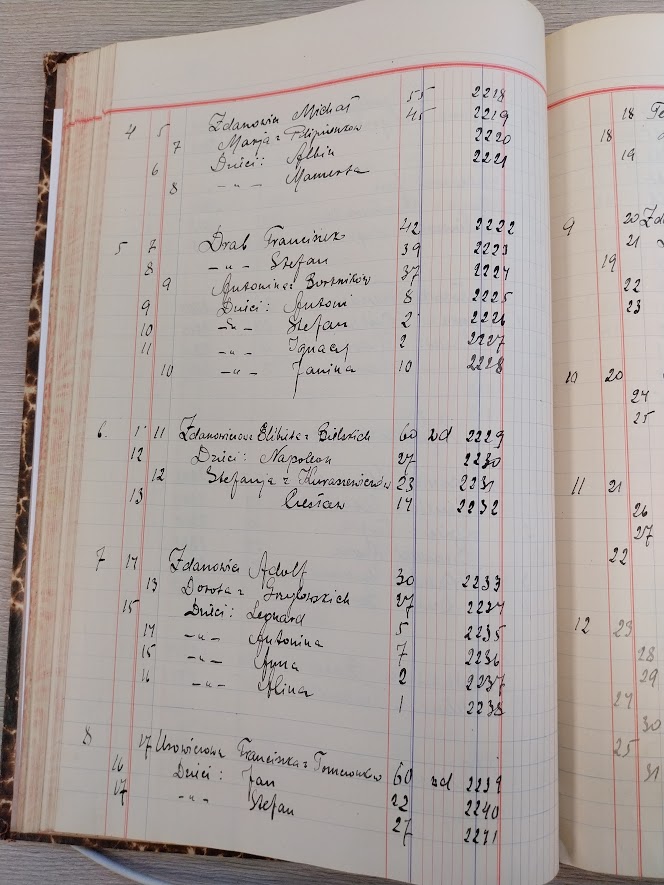 4 5 Zdanowicz Michał 55 2218
7 Marja z Filipionków 45 2219
6 Dzieci: Albin 2220
8 -"- Mamerta 2221
5 7 Drab Franciszek 42 2222
8 -"- Stefan 39 2223
9 Antonina z Bortników 37 2224
9 Dzieci: Antoni 8 2225
10 -"- Stefan 2 2226
11 -"- Ignacy 2 2227
10 -"- Janina 10 2228
6. 1 11 Zdanowiczowa Elżbieta z Bielskich 60 wd 2229
12 Dzieci: Napoleon 27 2230
12 Stefanja z Kuraszewiczów 23 2231
13 Czesław 14 2232
7 14 Zdanowicz Adolf 30 2233
13 Dorota z Grzybowskich 27 2234
15 Dzieci: Leonard 5 2235
14 -"- Antonina 7 2236
15 -"- Anna 2 2237
16 -"- Alina 1 2238
8 17 Franciszka z 60 wd 2239
16 Dzieci: Jan 22 2240
17 -"- Stefan 27 2241
18
18
19
9 20 Zd
21
19
22
23
10 20
24
25
11 21
26
27
22
12 23
28
29
24
30
25
31